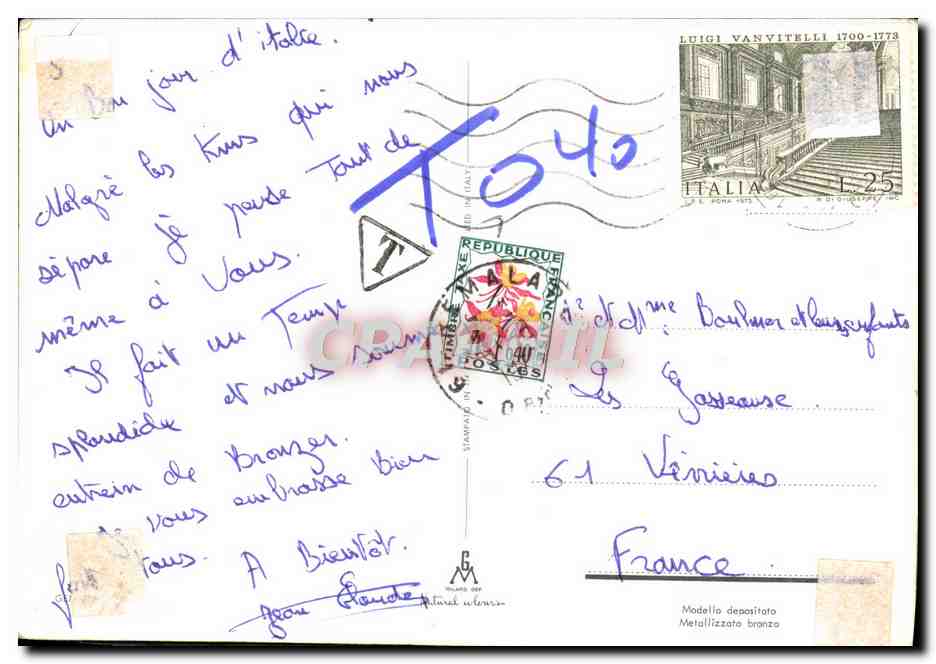 Un Bon jour d'italie.
Malgré les Kms qui nous
sépare je pense Tout de
même à Vous.
Il fait un Temps
splendide et nous sommes
entrein de Bronzer.
Je vous embrasse Bien
fort tous.
A Bientôt.
Jean Claude
T 040
T
LUIGI VANVITELLI 1700-1773
ITALIA L.25
I.P.Z.S. ROMA 1973
REPUBLIQUE FRANCAISE
TIMBRE TAXE
0,40
POSTES
MALA
CPARAMIL
Mr et Mme Boulmer et leurs enfants
Les Gasseause
61 Vérrières
France
STAMPATO IN ITALY
GM
MILANO DEP.
Natural colorsin
Modello depositato
Metallizzato bronzo